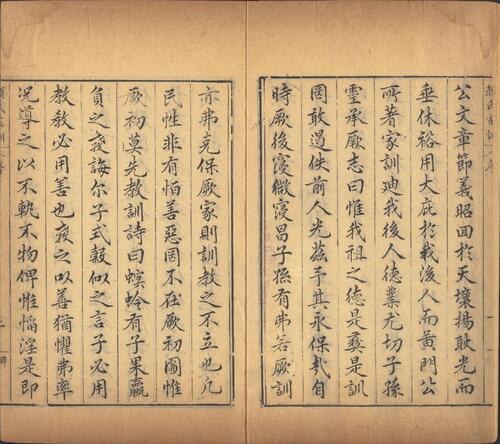 公文章節義昭囬於天壤揚耿光而
垂休裕用大庇於我後人而黃門公
所著家訓迪我後人德業尤切子孫
靈承厥志曰惟我祖之德是彝是訓
罔敢過佚前人光茲予其永保哉自
時厥後寖微寖昌子孫有弗若厥訓
亦弗克保厥家則訓教之不立也凡
民性非有恒善惡罔不在厥初圖惟
厥初莫先教訓詩曰螟蛉有子果蠃
負之教誨尔子式糓似之言子必用
教教必用善也教之以善猶懼弗率
況導之以不軌不物俾惟慆淫是即
二